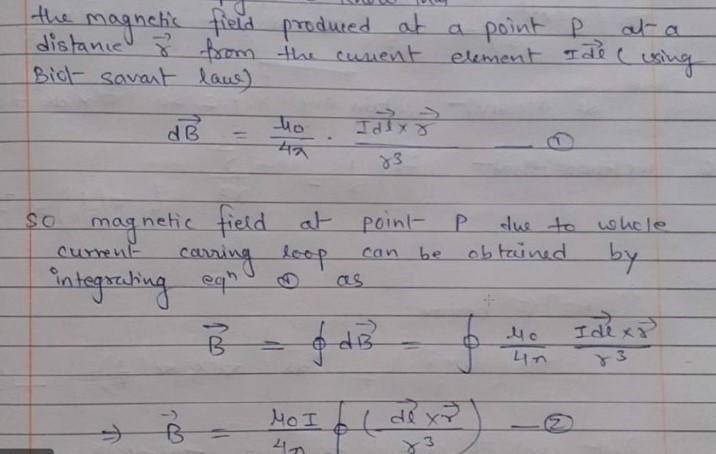 the magnetic field produced at a point P at a
distance r⃗ from the current element Idl⃗ (using
Biot savart laws)
dB⃗ = μ0/4π . Idl⃗ × r⃗ / r3 — ①
so magnetic field at point P due to whole
current carring loop can be obtained by
integrating eqn ① as
B⃗ = ∮ dB⃗ = ∮ μ0/4π Idl⃗ × r⃗ / r3
⇒ B⃗ = μ0 I/4π ∮ ( dl⃗ × r⃗ / r3 ) — ②